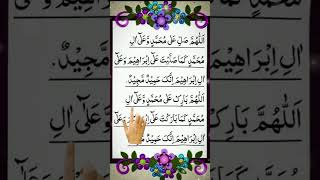 اَللّٰهُمَّ صَلِّ عَلٰى مُحَمَّدٍ وَّعَلٰٓى اٰلِ
مُحَمَّدٍ كَمَا صَلَّيْتَ عَلٰٓى اِبْرَاهِيْمَ وَعَلٰٓى
اٰلِ اِبْرَاهِيْمَ اِنَّكَ حَمِيْدٌ مَّجِيْدٌ.
اَللّٰهُمَّ بَارِكْ عَلٰى مُحَمَّدٍ وَّعَلٰٓى اٰلِ
مُحَمَّدٍ كَمَا بَارَكْتَ عَلٰٓى اِبْرَاهِيْمَ وَعَلٰٓى
اٰلِ اِبْرَاهِيْمَ اِنَّكَ حَمِيْدٌ مَّجِيْدٌ